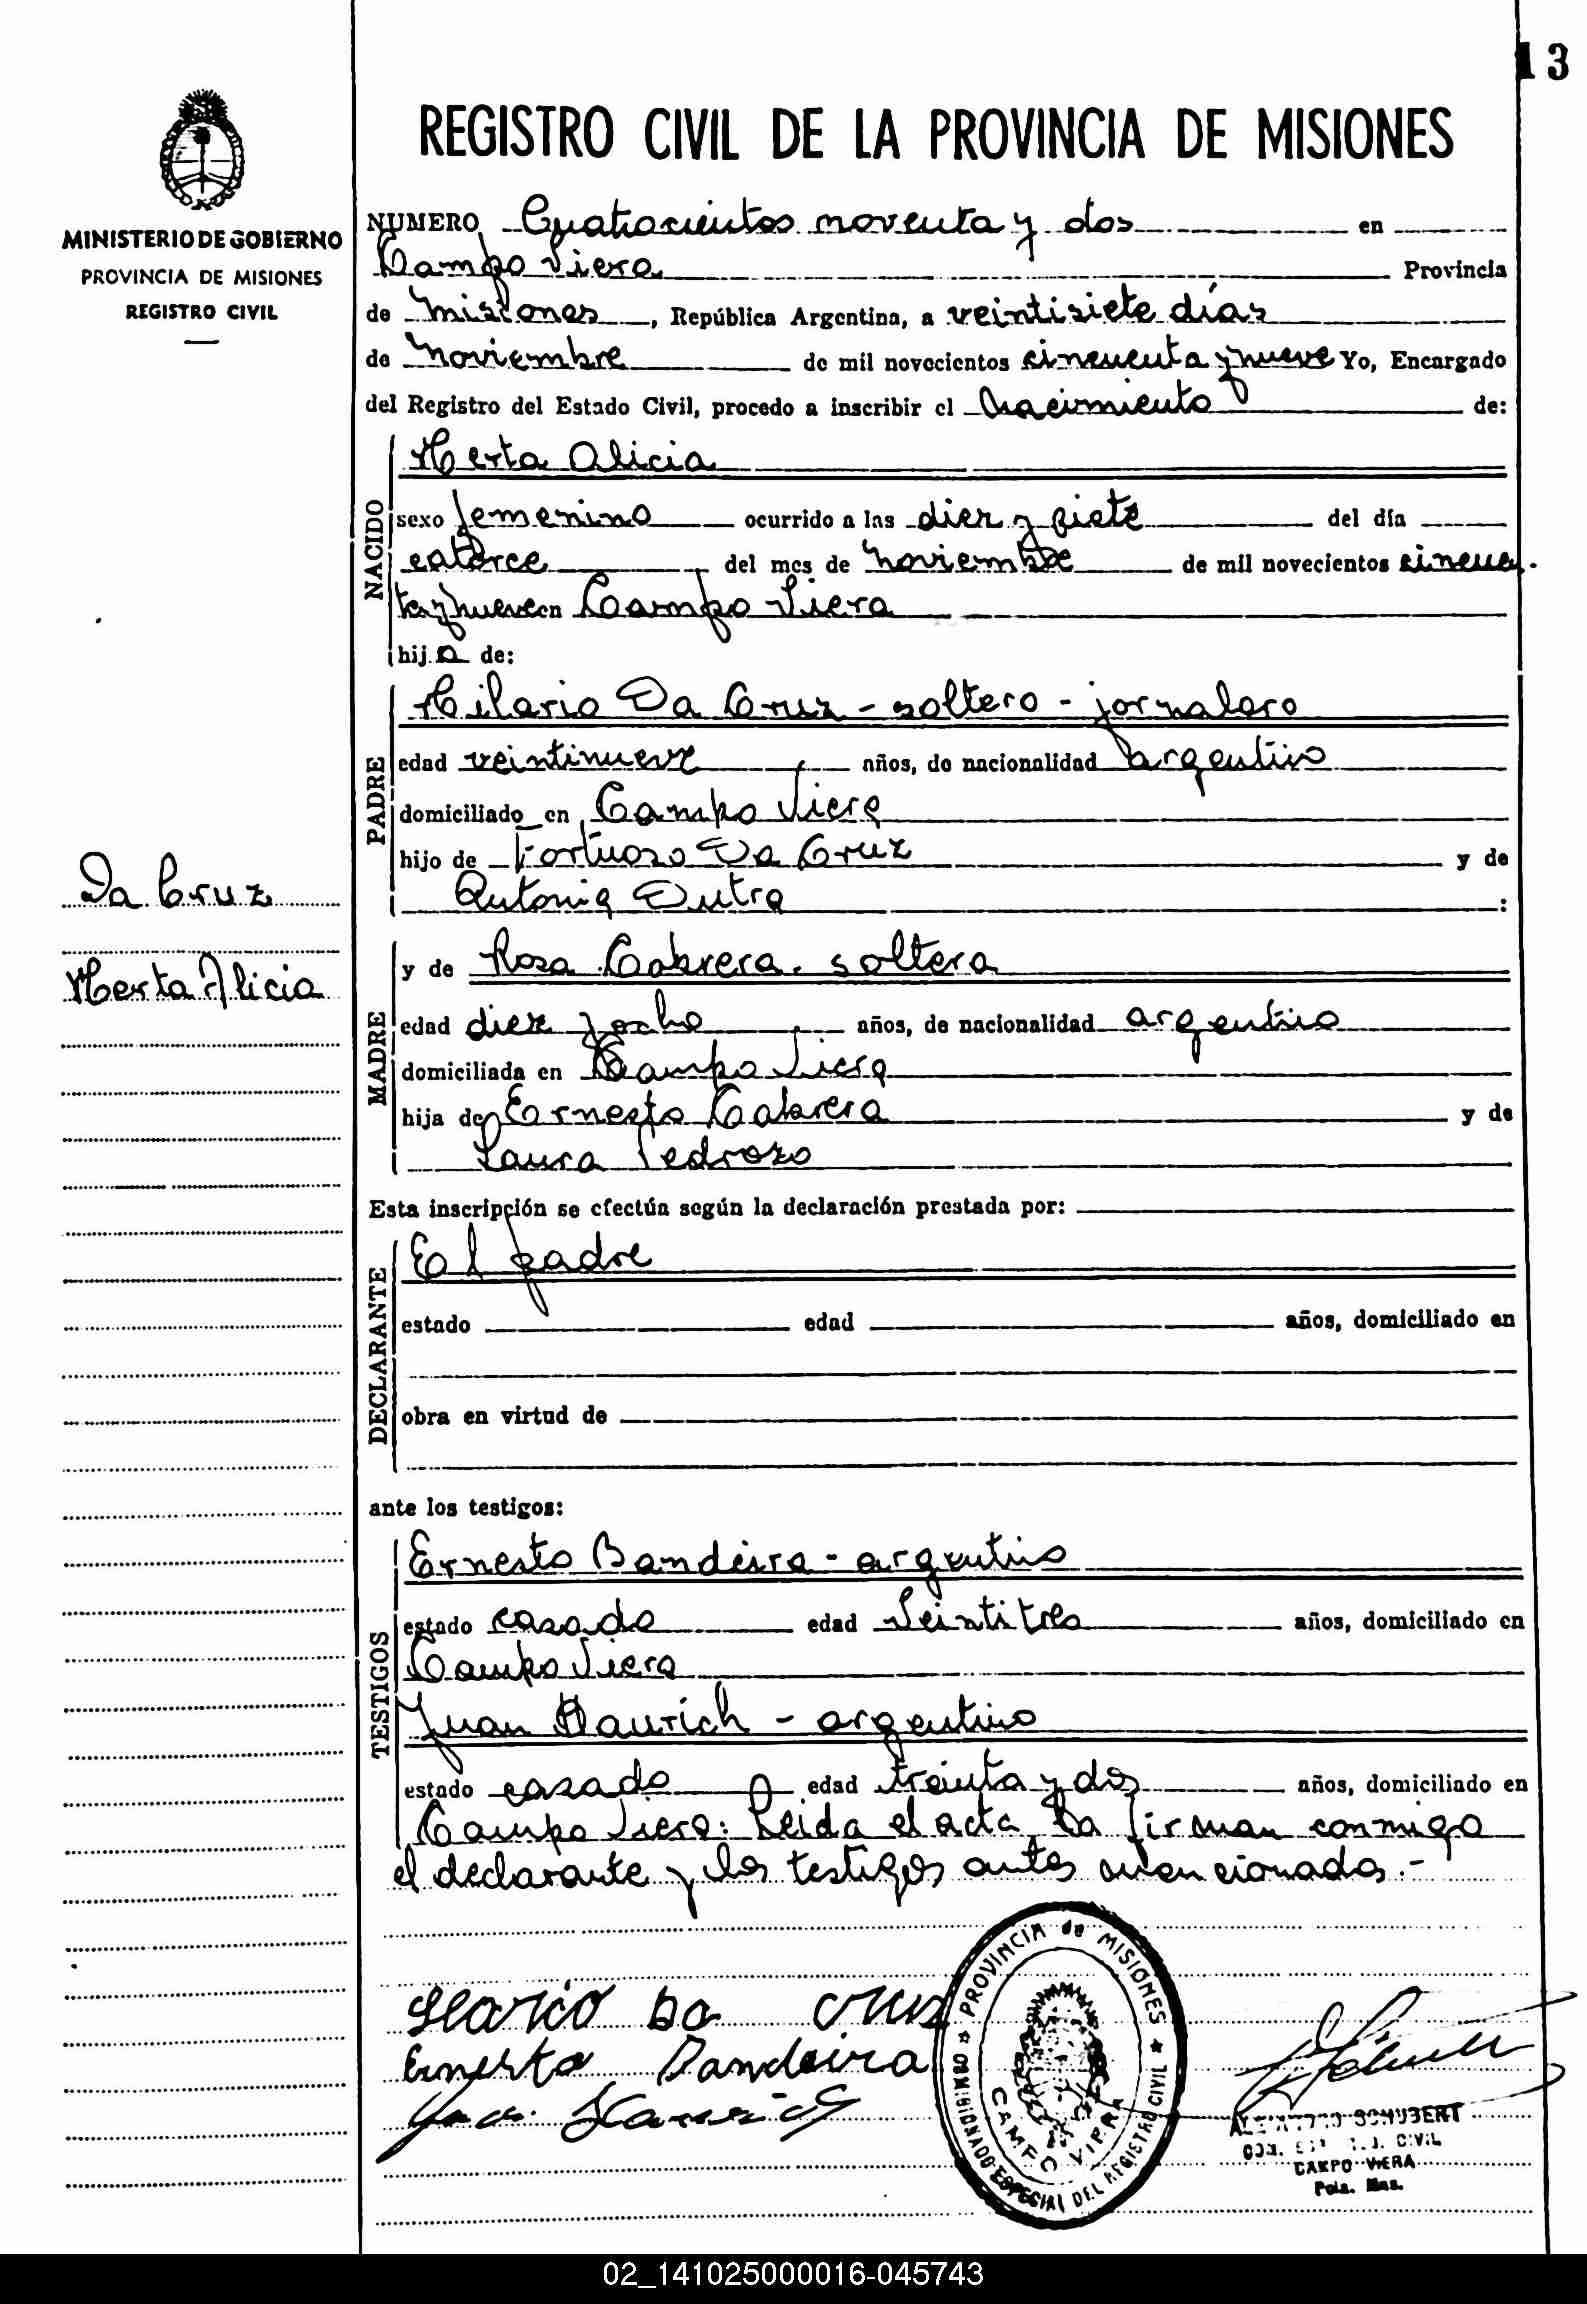 13
REGISTRO CIVIL DE LA PROVINCIA DE MISIONES
MINISTERIO DE GOBIERNO
PROVINCIA DE MISIONES
REGISTRO CIVIL
NUMERO Cuatrocientos noventa y dos en
Campo Viera Provincia
de misiones, República Argentina, a veintisiete días
de noviembre de mil novecientos cincuenta y nueve Yo, Encargado
del Registro del Estado Civil, procedo a inscribir el nacimiento de:
NACIDO
Herta Alicia
sexo femenino ocurrido a las diez y siete del día
catorce del mes de noviembre de mil novecientos cincuen
ta y nueve en Campo Viera
hija de:
PADRE
Hilario Da Cruz - soltero - jornalero
edad veintinueve años, de nacionalidad argentino
domiciliado en Campo Viera
hijo de Fortuoso Da Cruz y de
Antonia Dutra :
Da Cruz
Herta Alicia
MADRE
y de Rosa Cabrera. soltera
edad diez y ocho años, de nacionalidad argentina
domiciliada en Campo Viera
hija de Ernesto Cabrera y de
Laura Pedrozo
Esta inscripción se efectúa según la declaración prestada por:
DECLARANTE
El padre
estado edad años, domiciliado en
obra en virtud de
ante los testigos:
TESTIGOS
Ernesto Bandeira - argentino
estado casado edad Veintitres años, domiciliado en
Campo Viera
Juan Haurich - argentino
estado casado edad treinta y dos años, domiciliado en
Campo Viera: Leida el acta la firman conmigo
el declarante y los testigos antes mencionados.-
Ilario Da Cruz
Ernesto Bandeira
PROVINCIA de MISIONES
COMISIONADO ESPECIAL DEL REGISTRO CIVIL
CAMPO VIERA
SCHUBERT
CIVIL
CAMPO VIERA
Pcia. Mnes.
02_141025000016-045743